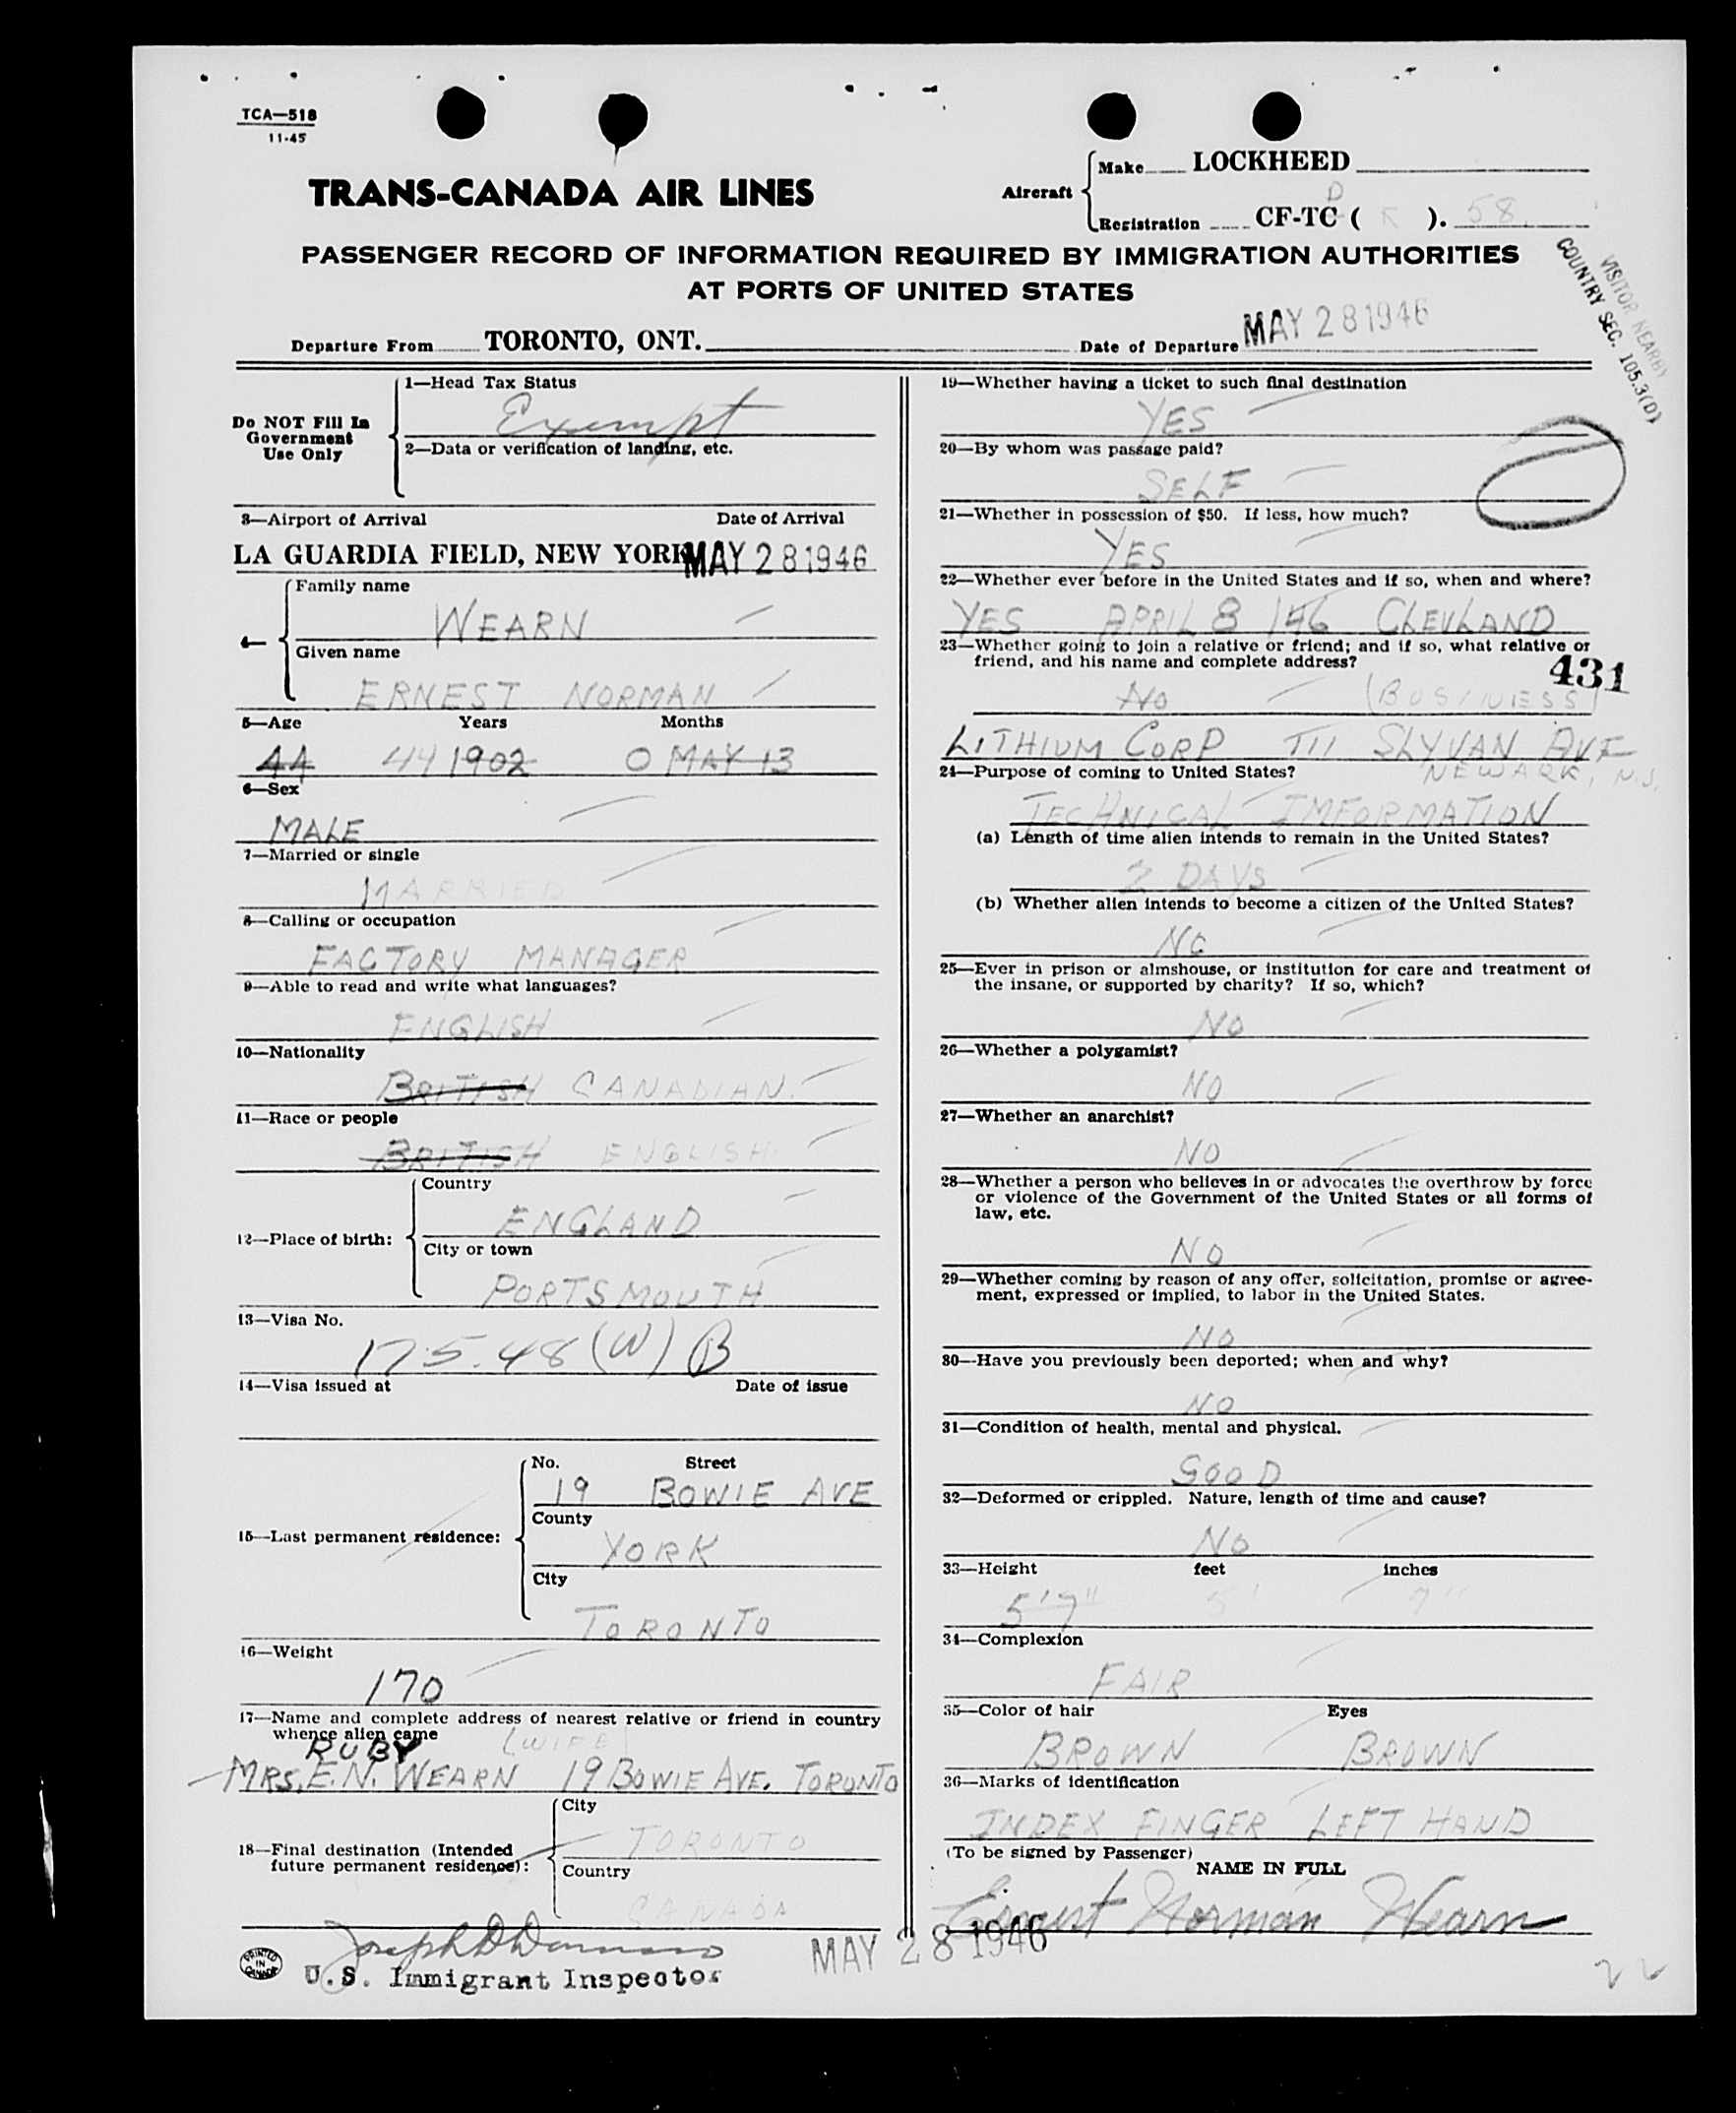 TCA—518
11-45
TRANS-CANADA AIR LINES
Aircraft
Make LOCKHEED
Registration CF-TC ( ). 58
D
PASSENGER RECORD OF INFORMATION REQUIRED BY IMMIGRATION AUTHORITIES
AT PORTS OF UNITED STATES
VISITOR NEARBY
COUNTRY SEC. 105.3(D)
Departure From TORONTO, ONT.
Date of Departure MAY 28 1946
Do NOT Fill In
Government
Use Only
1—Head Tax Status
Exempt
2—Data or verification of landing, etc.
3—Airport of Arrival Date of Arrival
LA GUARDIA FIELD, NEW YORK MAY 28 1946
4—
Family name
WEARN
Given name
ERNEST NORMAN
5—Age Years Months
44 44 1902 0 MAY 13
6—Sex
MALE
7—Married or single
MARRIED
8—Calling or occupation
FACTORY MANAGER
9—Able to read and write what languages?
ENGLISH
10—Nationality
BRITISH CANADIAN.
11—Race or people
BRITISH ENGLISH
12—Place of birth:
Country
ENGLAND
City or town
PORTSMOUTH
13—Visa No.
175.48 (W) B
14—Visa issued at Date of issue
15—Last permanent residence:
No. Street
19 BOWIE AVE
County
YORK
City
TORONTO
16—Weight
170
17—Name and complete address of nearest relative or friend in country
whence alien came
RUBY (WIFE)
MRS. E.N. WEARN 19 BOWIE AVE. TORONTO
18—Final destination (Intended
future permanent residence):
City
TORONTO
Country
CANADA
U.S. Immigrant Inspector
PRINTED
IN
CANADA
MAY 28 1946
19—Whether having a ticket to such final destination
YES
20—By whom was passage paid?
SELF
21—Whether in possession of $50. If less, how much?
YES
22—Whether ever before in the United States and if so, when and where?
YES APRIL 8 /46 CLEVLAND
23—Whether going to join a relative or friend; and if so, what relative or
friend, and his name and complete address?
431
NO (BUSINESS)
LITHIUM CORP 711 SLYVAN AVE
NEWARK, N.J.
24—Purpose of coming to United States?
TECHNICAL IMFORMATION
(a) Length of time alien intends to remain in the United States?
2 DAYS
(b) Whether alien intends to become a citizen of the United States?
NO
25—Ever in prison or almshouse, or institution for care and treatment of
the insane, or supported by charity? If so, which?
NO
26—Whether a polygamist?
NO
27—Whether an anarchist?
NO
28—Whether a person who believes in or advocates the overthrow by force
or violence of the Government of the United States or all forms of
law, etc.
NO
29—Whether coming by reason of any offer, solicitation, promise or agree-
ment, expressed or implied, to labor in the United States.
NO
30—Have you previously been deported; when and why?
NO
31—Condition of health, mental and physical.
GOOD
32—Deformed or crippled. Nature, length of time and cause?
NO
33—Height feet inches
5'7" 5' 7"
34—Complexion
FAIR
35—Color of hair Eyes
BROWN BROWN
36—Marks of identification
INDEX FINGER LEFT HAND
(To be signed by Passenger)
NAME IN FULL
Ernest Norman Wearn